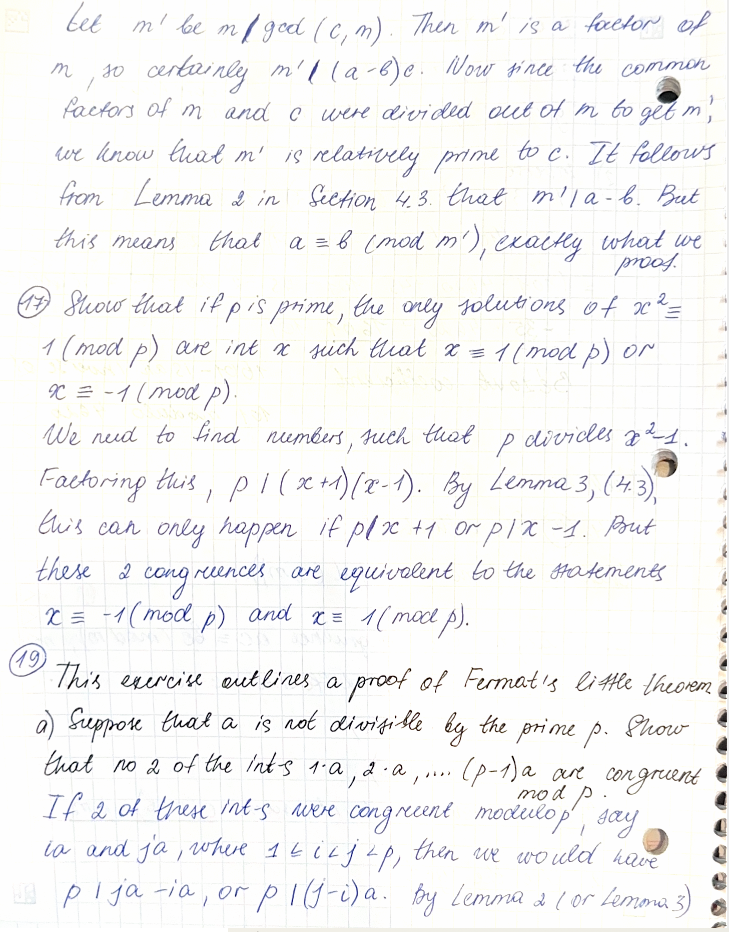 Let m' be m/gcd(c,m). Then m' is a factor of
m, so certainly m' | (a-b)c. Now since the common
factors of m and c were divided out of m to get m',
we know that m' is relatively prime to c. It follows
from Lemma 2 in Section 4.3. that m' | a-b. But
this means that a ≡ b (mod m'), exactly what we
proof.
17 Show that if p is prime, the only solutions of x² ≡
1 (mod p) are int x such that x ≡ 1 (mod p) or
x ≡ -1 (mod p).
We need to find numbers, such that p divides x²-1.
Factoring this, p | (x+1)(x-1). By Lemma 3, (4.3),
this can only happen if p|x+1 or p|x-1. But
these 2 congruences are equivalent to the statements
x ≡ -1 (mod p) and x ≡ 1 (mod p).
19 This exercise outlines a proof of Fermat's little theorem
a) Suppose that a is not divisible by the prime p. Show
that no 2 of the int-s 1·a, 2·a, .... (p-1)a are congruent
mod p.
If 2 of these int-s were congruent modulo p, say
ia and ja, where 1 ≤ i < j < p, then we would have
p | ja - ia, or p | (j-i)a. By Lemma 2 (or Lemma 3)